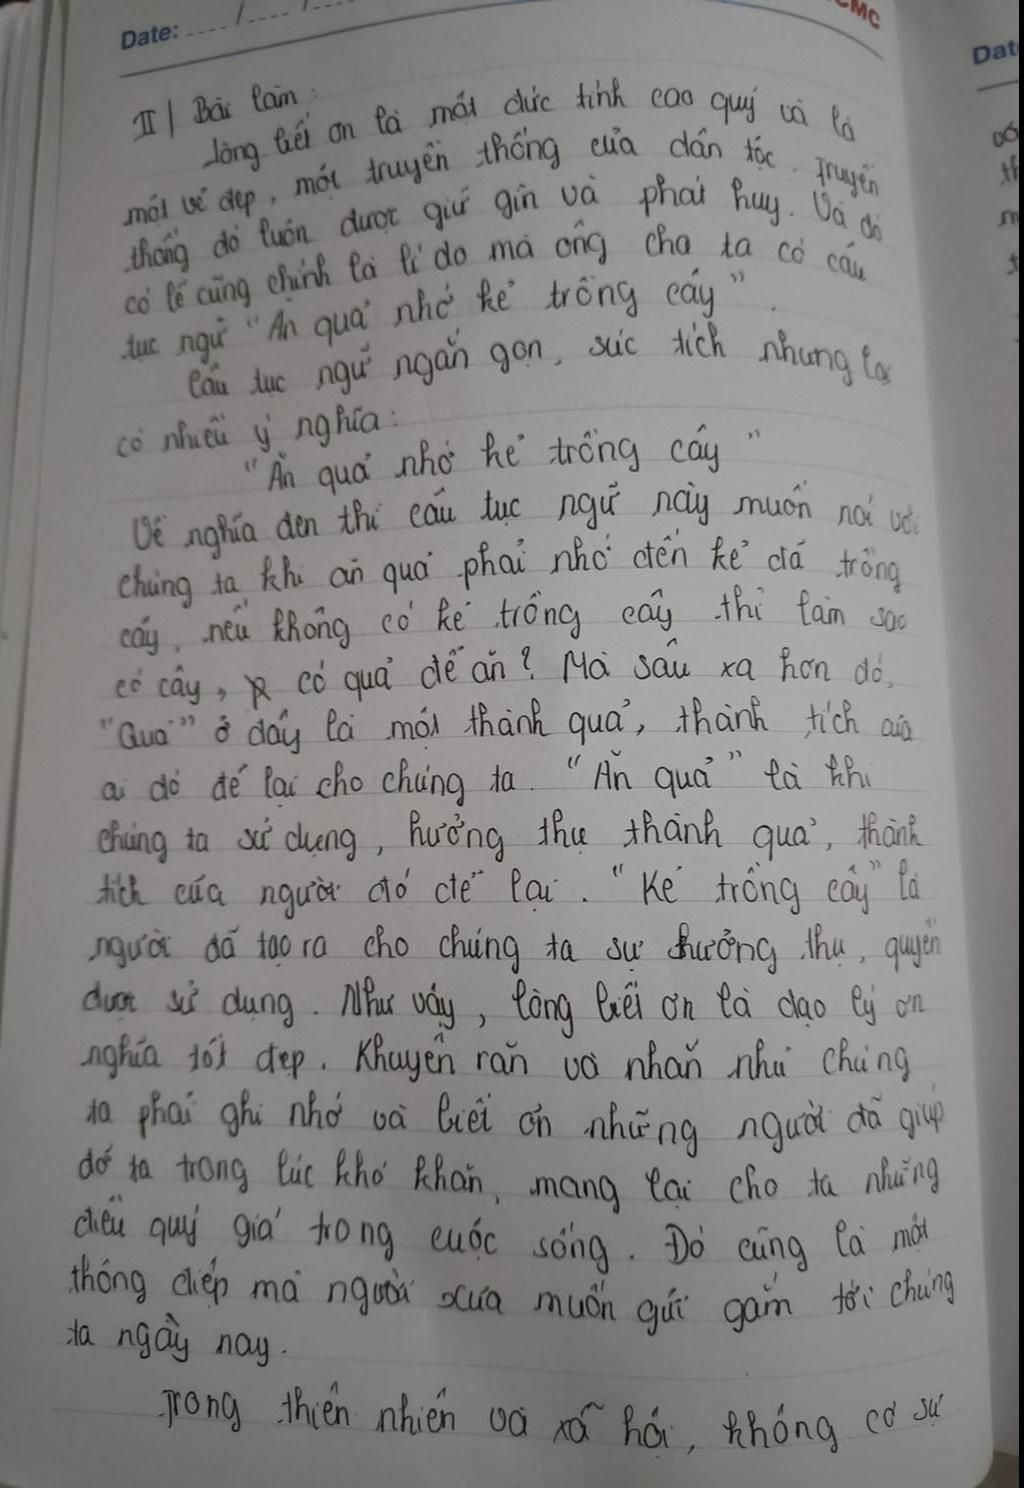 Date: ..../..../....
CMC
II/ Bài làm:
Lòng biết ơn là một đức tính cao quý và là
một vẻ đẹp, một truyền thống của dân tộc. Truyền
thống đó luôn được giữ gìn và phát huy. Và đó
có lẽ cũng chính là lí do mà ông cha ta có câu
tục ngữ "Ăn quả nhớ kẻ trồng cây".
Câu tục ngữ ngắn gọn, súc tích nhưng lại
có nhiều ý nghĩa:
"Ăn quả nhớ kẻ trồng cây"
Về nghĩa đen thì câu tục ngữ này muốn nói với
chúng ta khi ăn quả phải nhớ đến kẻ đã trồng
cây, nếu không có kẻ trồng cây thì làm sao
có cây, có quả để ăn? Mà sâu xa hơn đó,
"Quả" ở đây là một thành quả, thành tích của
ai đó để lại cho chúng ta. "Ăn quả" là khi
chúng ta sử dụng, hưởng thụ thành quả, thành
tích của người đó để lại. "Kẻ trồng cây" là
người đã tạo ra cho chúng ta sự hưởng thụ, quyền
được sử dụng. Như vậy, lòng biết ơn là đạo lý ơn
nghĩa tốt đẹp. Khuyên răn và nhắn nhủ chúng
ta phải ghi nhớ và biết ơn những người đã giúp
đỡ ta trong lúc khó khăn, mang lại cho ta những
điều quý giá trong cuộc sống. Đó cũng là một
thông điệp mà người xưa muốn gửi gắm tới chúng
ta ngày nay.
Trong thiên nhiên và xã hội, không có sự